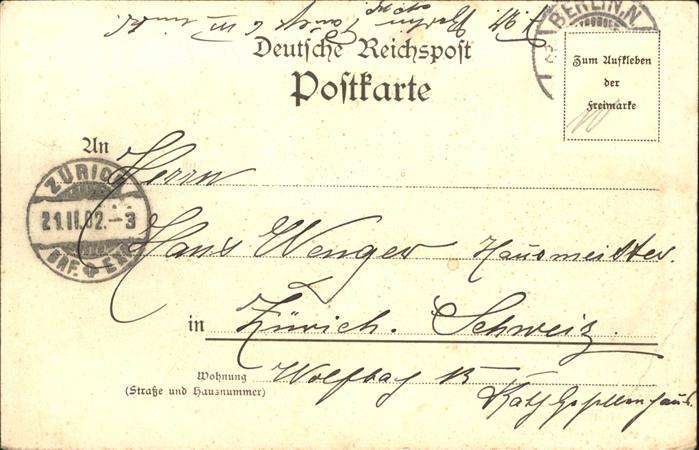 BERLIN, N.
Deutsche Reichspost
Postkarte
Zum Aufkleben
der
Freimarke
An Herrn
ZÜRICH
21.II.02.-3
BRF.
Hans Wenger Hausmeister.
in Zürich. Schweiz.
Wohnung Wolfbach 15
(Straße und Hausnummer)
Kath. Gesellenhaus